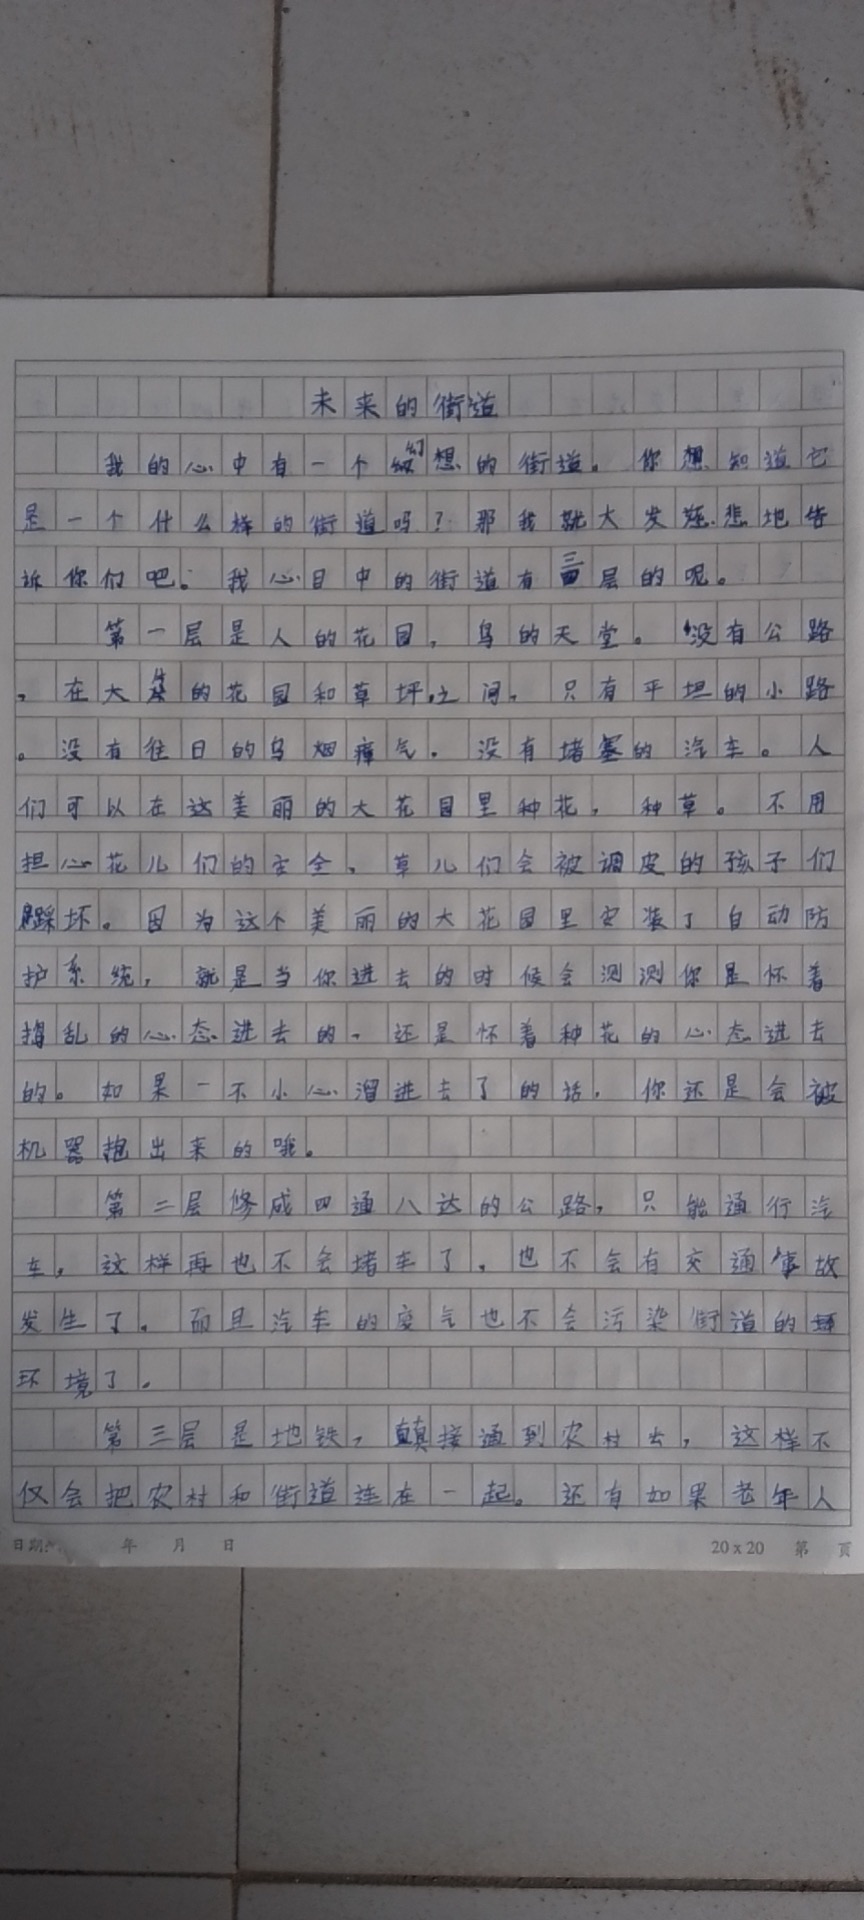 未来的街道
我的心中有一个幻想的街道。你想知道它
是一个什么样的街道吗？那我就大发慈悲地告
诉你们吧。我心目中的街道有三层的呢。
第一层是人的花园，鸟的天堂。没有公路
，在大的花园和草坪之间，只有平坦的小路
。没有往日的乌烟瘴气。没有堵塞的汽车。人
们可以在这美丽的大花园里种花，种草。不用
担心花儿们的安全，草儿们会被调皮的孩子们
踩坏。因为这个美丽的大花园里安装了自动防
护系统，就是当你进去的时候会测测你是怀着
捣乱的心态进去的，还是怀着种花的心态进去
的。如果一不小心溜进去了的话，你还是会被
机器抱出来的哦。
第二层修成四通八达的公路，只能通行汽
车，这样再也不会堵车了，也不会有交通事故
发生了。而且汽车的废气也不会污染街道的
环境了。
第三层是地铁，直接通到农村去，这样不
仅会把农村和街道连在一起。还有如果老年人
日期： 年 月 日 20x20 第 页